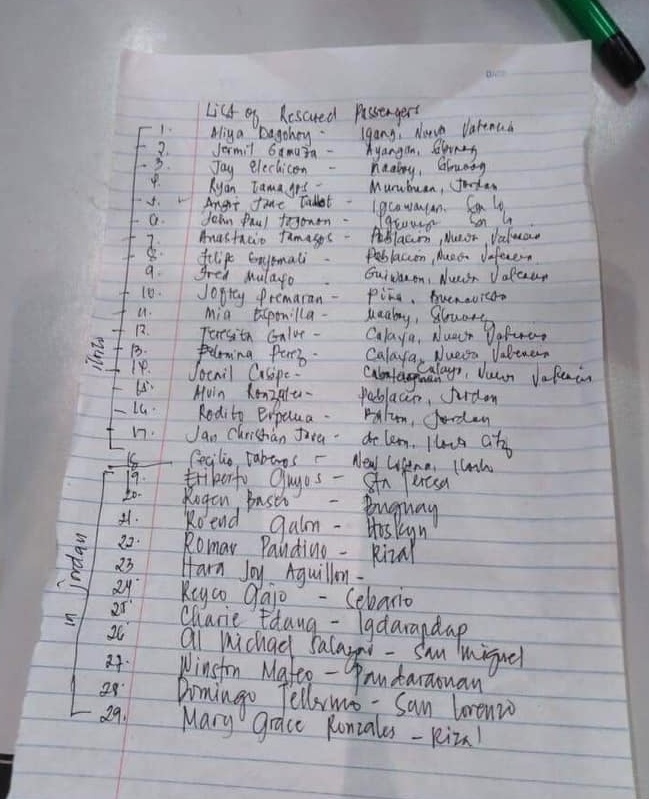 List of Rescued Passengers
1. Aliya Dagohoy - Igang, Nueva Valencia
2. Jermil Gamuza - Ayangan, Sibunag
3. Jay Elechicon - Maabay, Sibunag
4. Ryan Tamagos - Murubuan, Jordan
5. Angie Jane - Igcawayan, San Lo
6. John Paul - San Lo
7. Anastacio Tamagos - Poblacion, Nueva Valencia
8. Felipe - Poblacion, Nueva Valencia
9. Fred - Guiwanon, Nueva Valencia
10. Joffey Premaran - Piña, Buenavista
11. Mia Esponilla - Maabay, Sibunag
12. Teresita Galve - Calaya, Nueva Valencia
13. Perez - Calaya, Nueva Valencia
14. Joenil Casipe - Calaya, Nueva Valencia
15. Alvin Ronzales - Poblacion, Jordan
16. Rodito - Jordan
17. Jan Christian - de Leon, Iloilo City
18. Cecilio Taberos - New Iloilo
19. Eriberto - Sta Teresa
20. Rogen Basco - Bugnay
21. Ro'end Galon - Hoskyn
22. Romar Pandino - Rizal
23 Hara Joy Aguillon -
24. Reyco Gajo - Sebario
25 Charie Edang - Igdarapdap
26 Al Michael Salazar - San Miguel
27. Winston Mateo - Pandaraonan
28. Domingo Tellermo - San Lorenzo
29. Mary Grace Ronzales - Rizal
in jordan